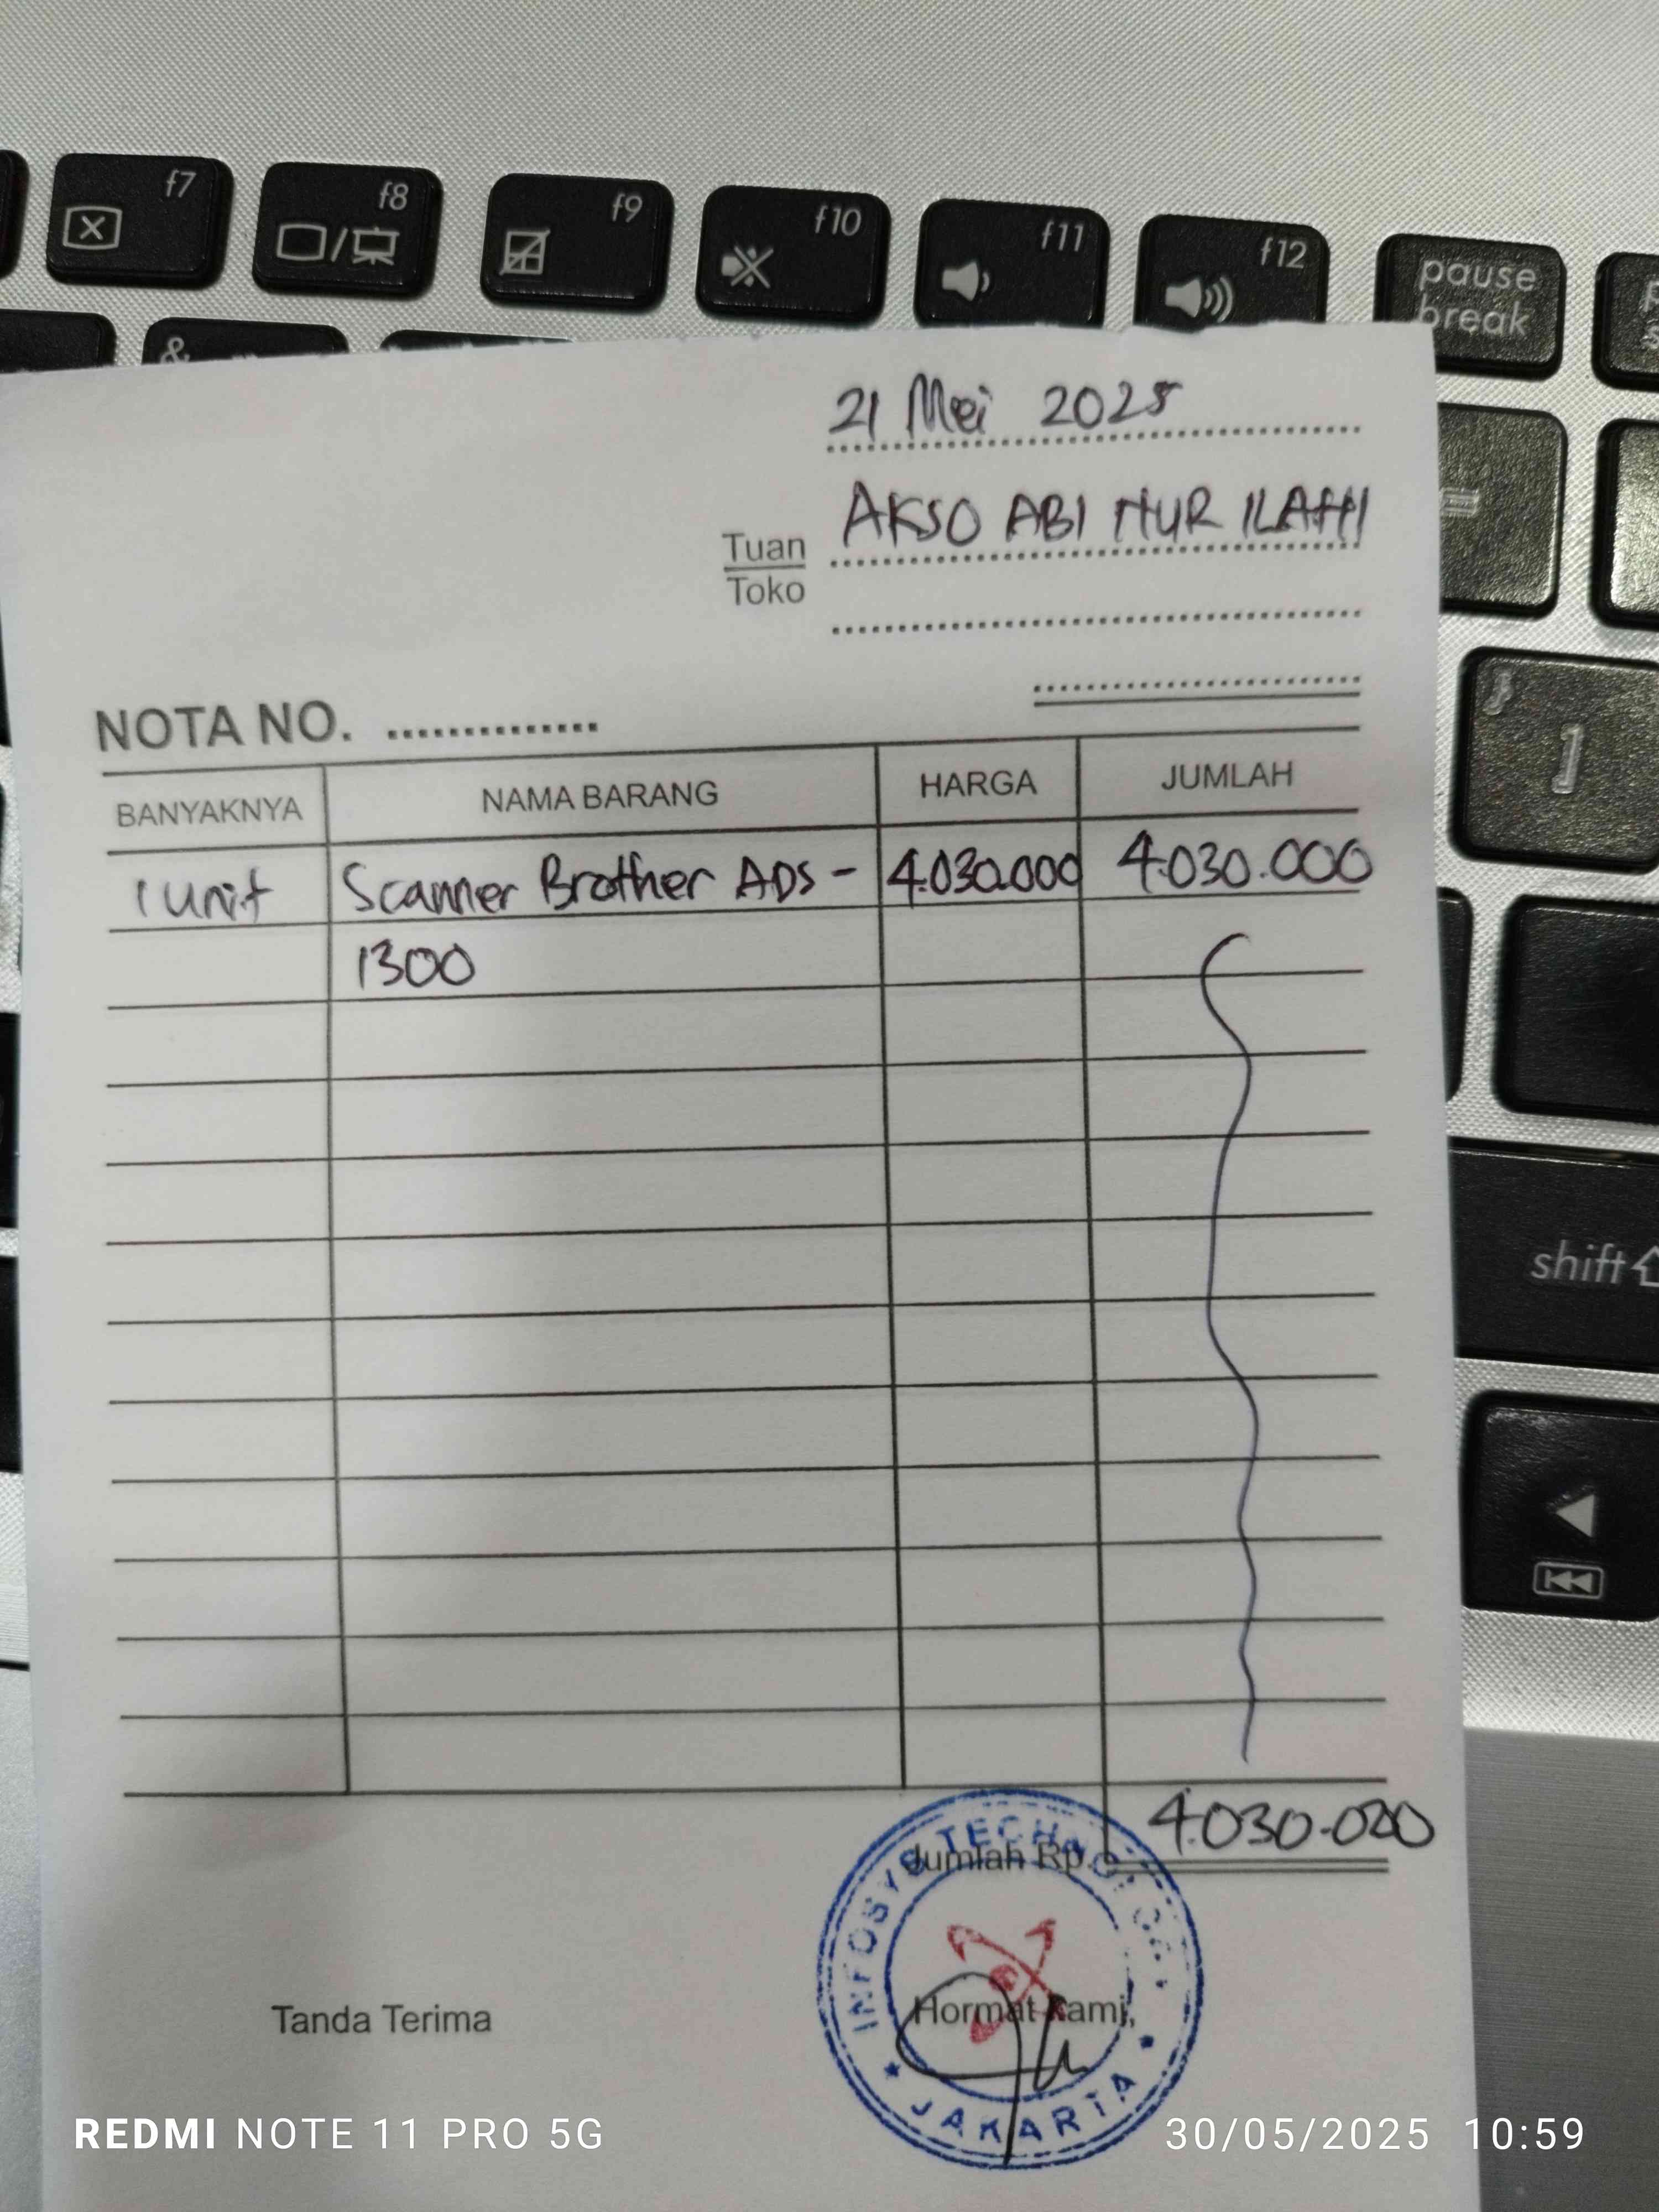 f7
f8
f9
f10
f11
f12
pause
break
&
21 Mei 2025
Tuan
Toko
AKSO ABI NUR ILAHI
NOTA NO. ..............
BANYAKNYA NAMA BARANG HARGA JUMLAH
1 Unit Scanner Brother ADS - 4.030.000 4.030.000
1300
1
shift
Jumlah Rp. 4.030.000
INFOSYS TECHNOLOGY
JAKARTA
Tanda Terima
Hormat Kami,
REDMI NOTE 11 PRO 5G
30/05/2025 10:59